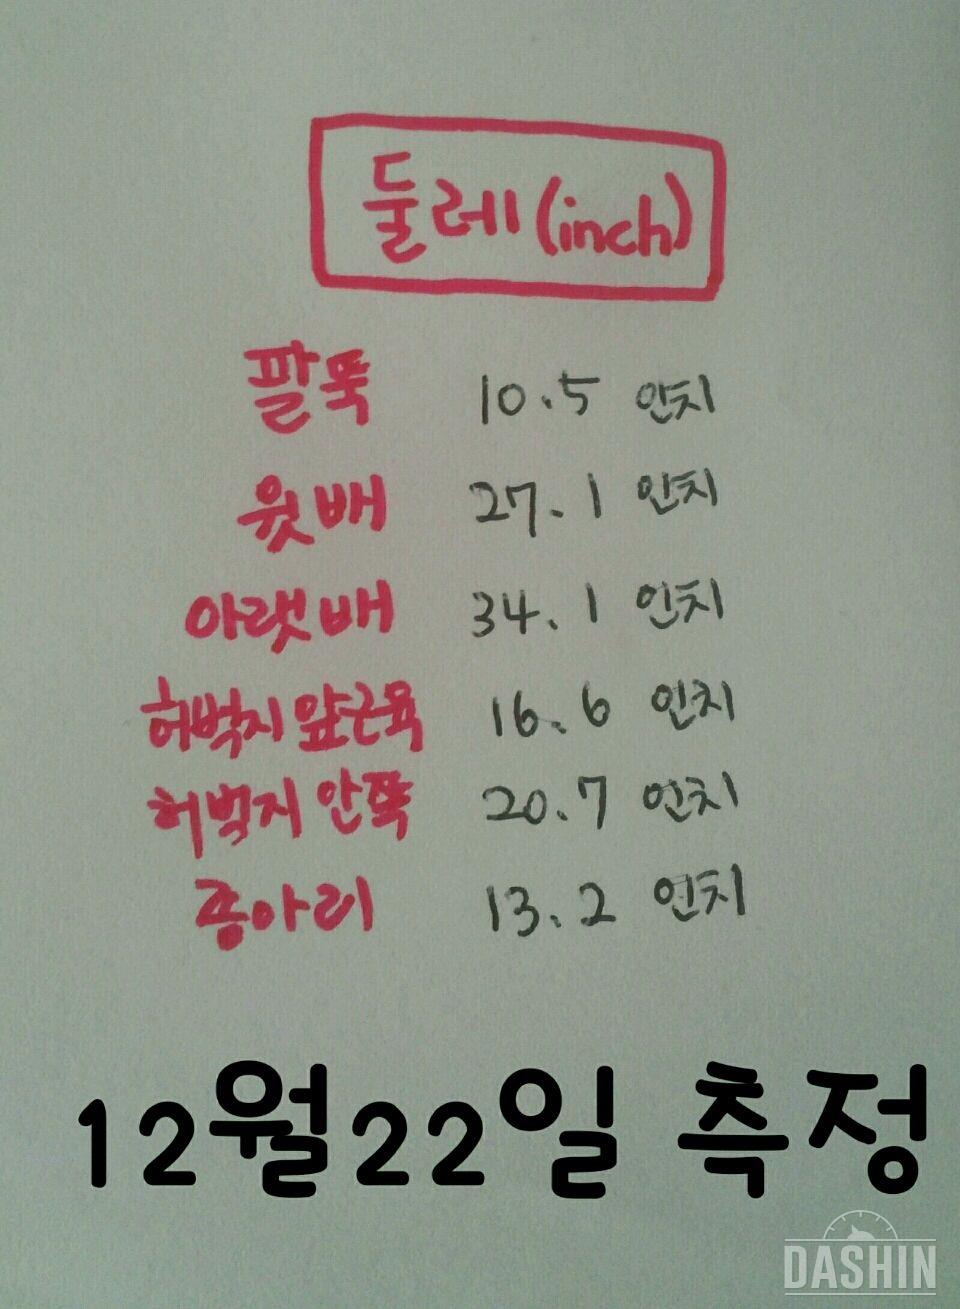 둘레(inch)
팔뚝 10.5 인치
윗배 27.1 인치
아랫배 34.1 인치
허벅지 앞근육 16.6 인치
허벅지 안쪽 20.7 인치
종아리 13.2 인치
12월22일 측정
DASHIN